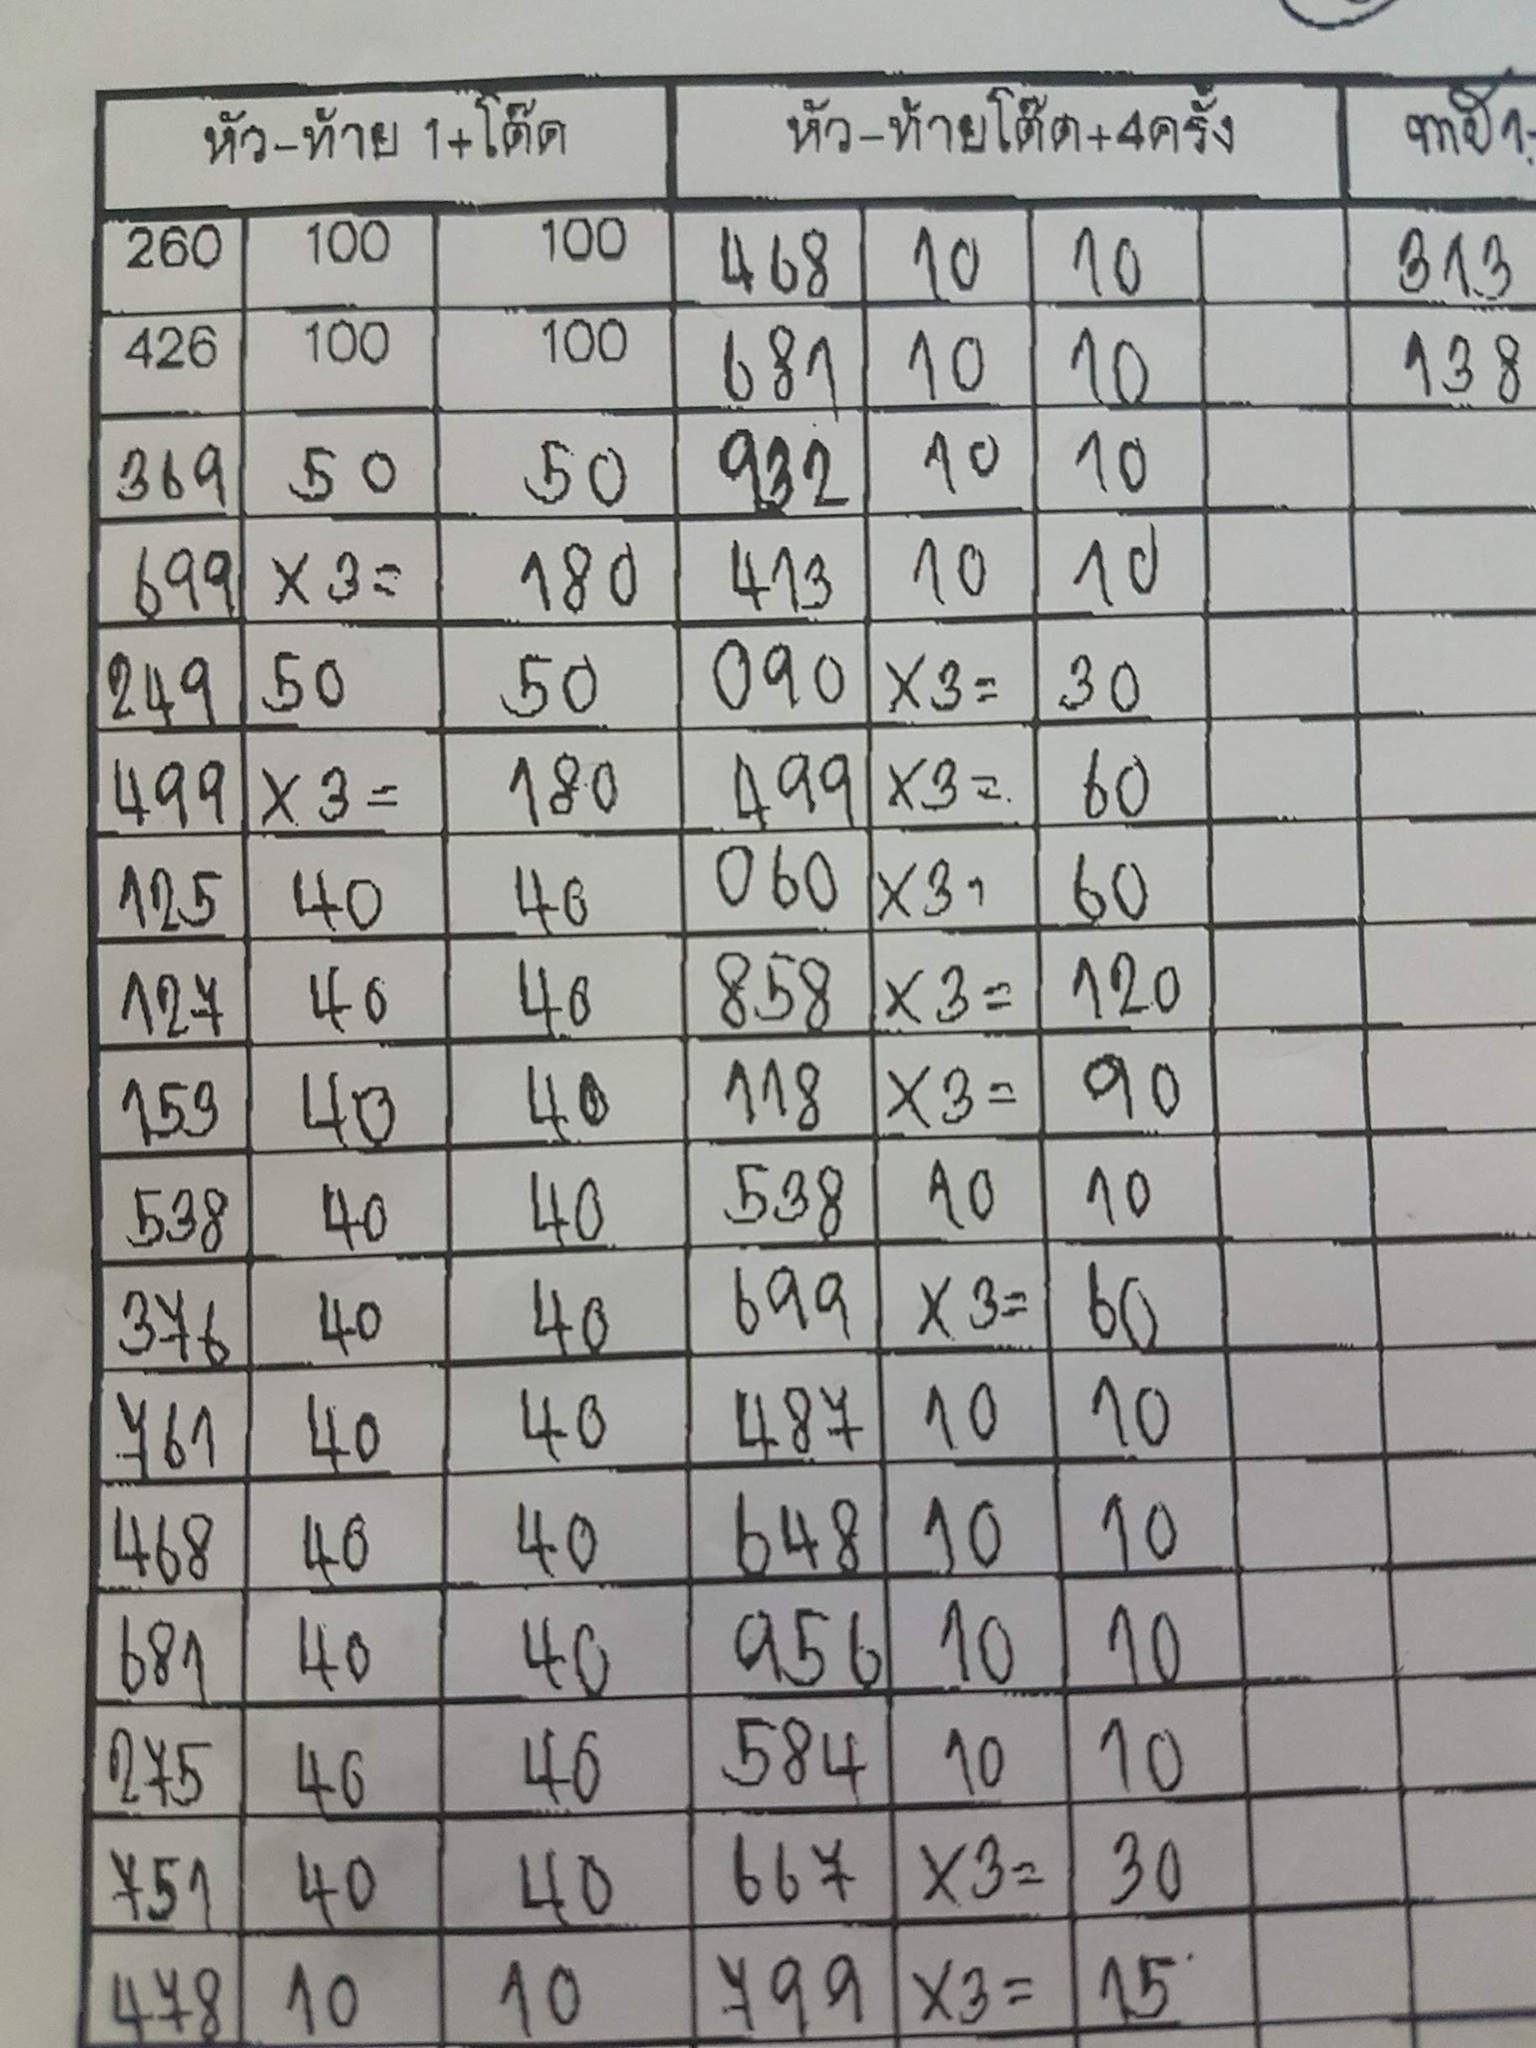 หัว-ท้าย 1+โต๊ด หัว-ท้ายโต๊ด+4ครั้ง
260 100 100 468 10 10 313
426 100 100 681 10 10 138
369 50 50 932 10 10
699 X3= 180 413 10 10
249 50 50 090 X3= 30
499 X3= 180 499 X3= 60
125 40 40 060 X3= 60
127 40 40 858 X3= 120
159 40 40 118 X3= 90
538 40 40 538 10 10
376 40 40 699 X3= 60
761 40 40 487 10 10
468 40 40 648 10 10
681 40 40 956 10 10
275 40 40 584 10 10
751 40 40 667 X3= 30
478 10 10 799 X3= 15